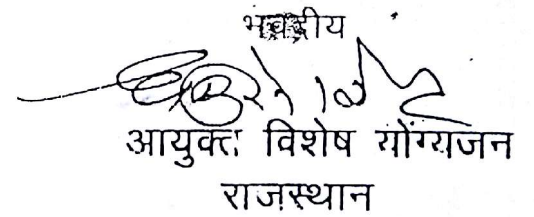 भवदीय
आयुक्त विशेष योंग्यजन
राजस्थान